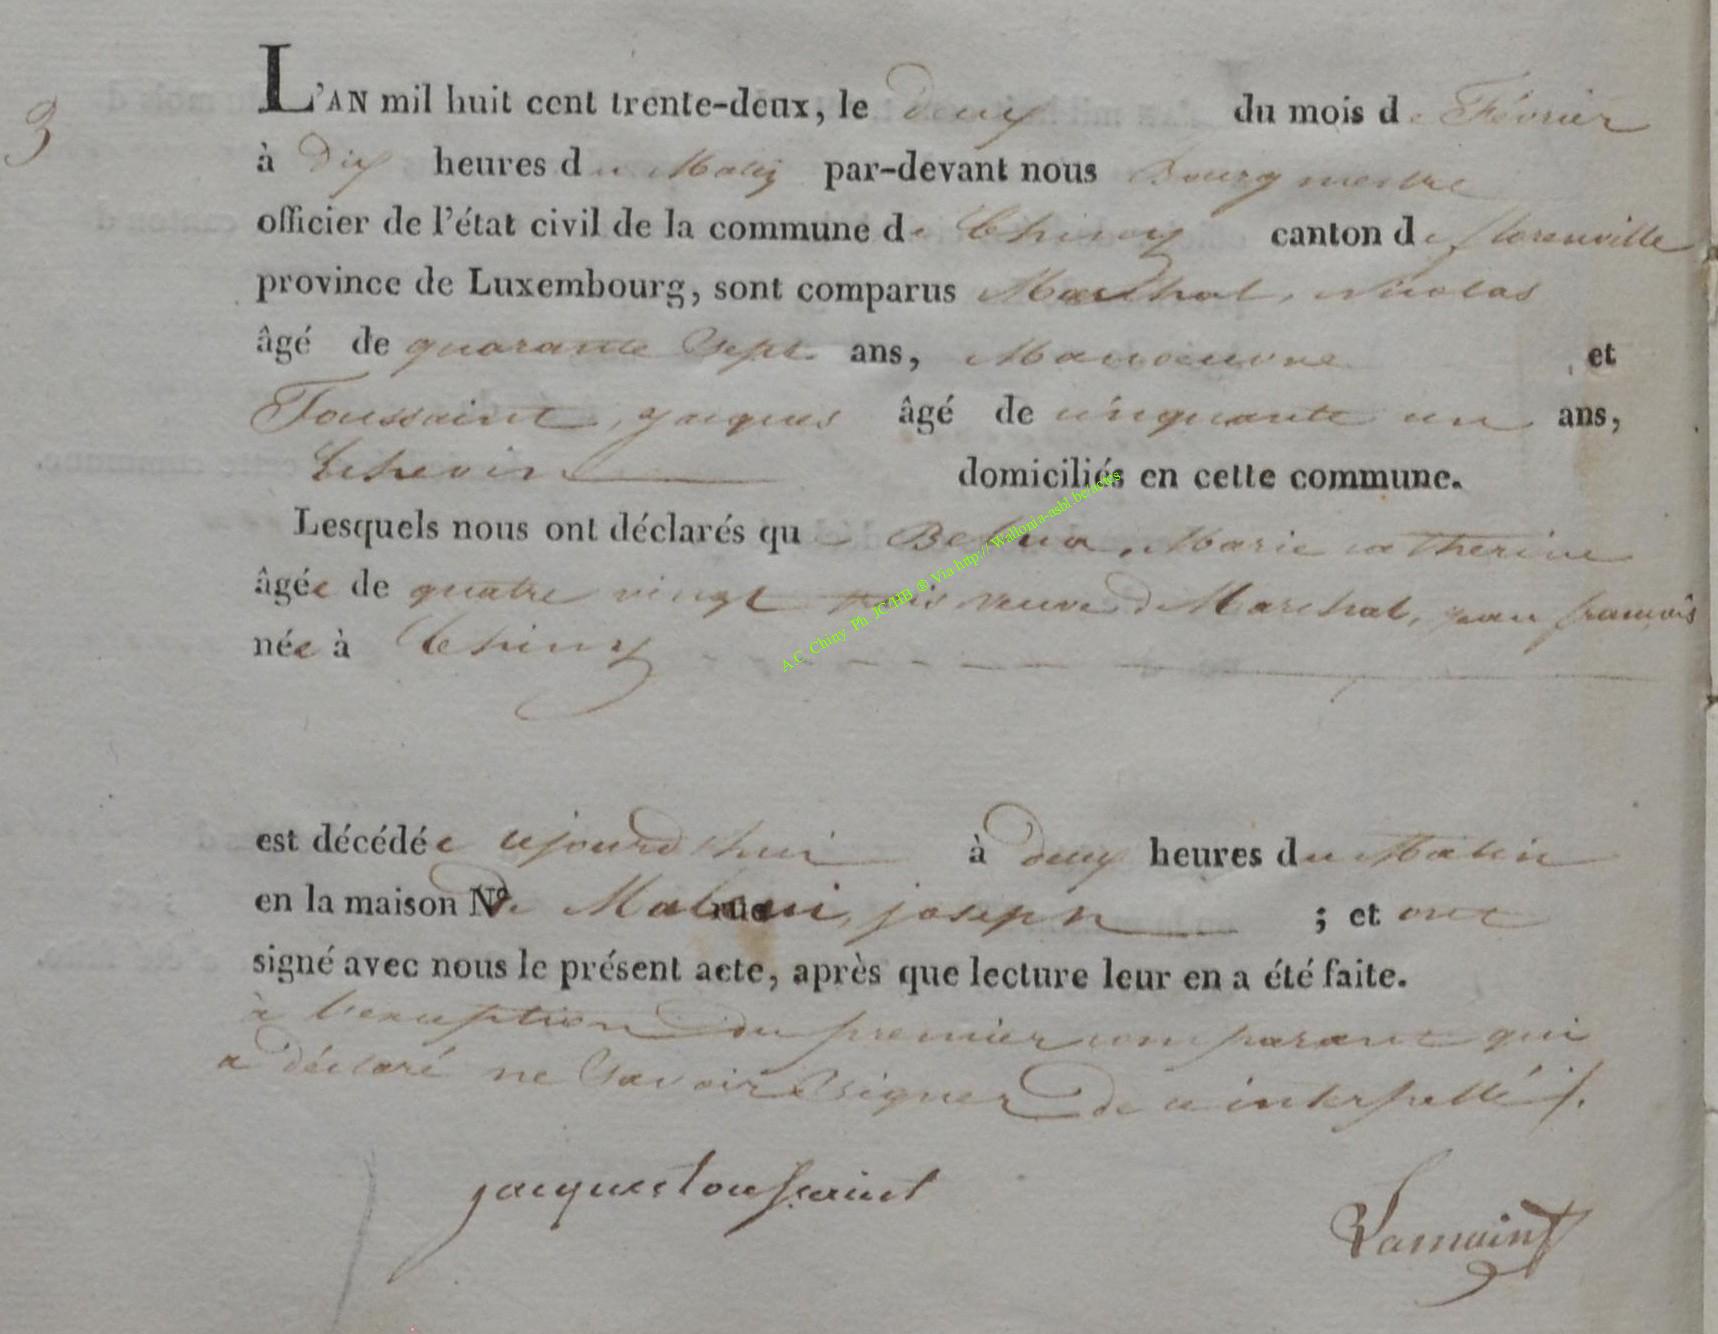 3
L'AN mil huit cent trente-deux, le deux du mois de Février
à Dix heures du Matin par-devant nous Bourgmestre
officier de l'état civil de la commune de Chiny canton de florenville
province de Luxembourg, sont comparus Marchal, Nicolas
âgé de quarante Sept ans, Manoeuvre et
Toussaint, jacques âgé de cinquante un ans,
Echevin domiciliés en cette commune.
Lesquels nous ont déclarés que Marie catherine
âgée de quatre vingt trois veuve de Marchal, jean françois
née à Chiny
A.C Chiny Ph JC/HB ® Via http://Wallonia-asbl.be/actes
est décédée ajourd'hui à deux heures du Matin
en la maison N° de rue joseph ; et ont
signé avec nous le présent acte, après que lecture leur en a été faite.
à l'exception du premier comparant qui
a déclaré ne Savoir Signer de ce interpellé
jacques toussaint